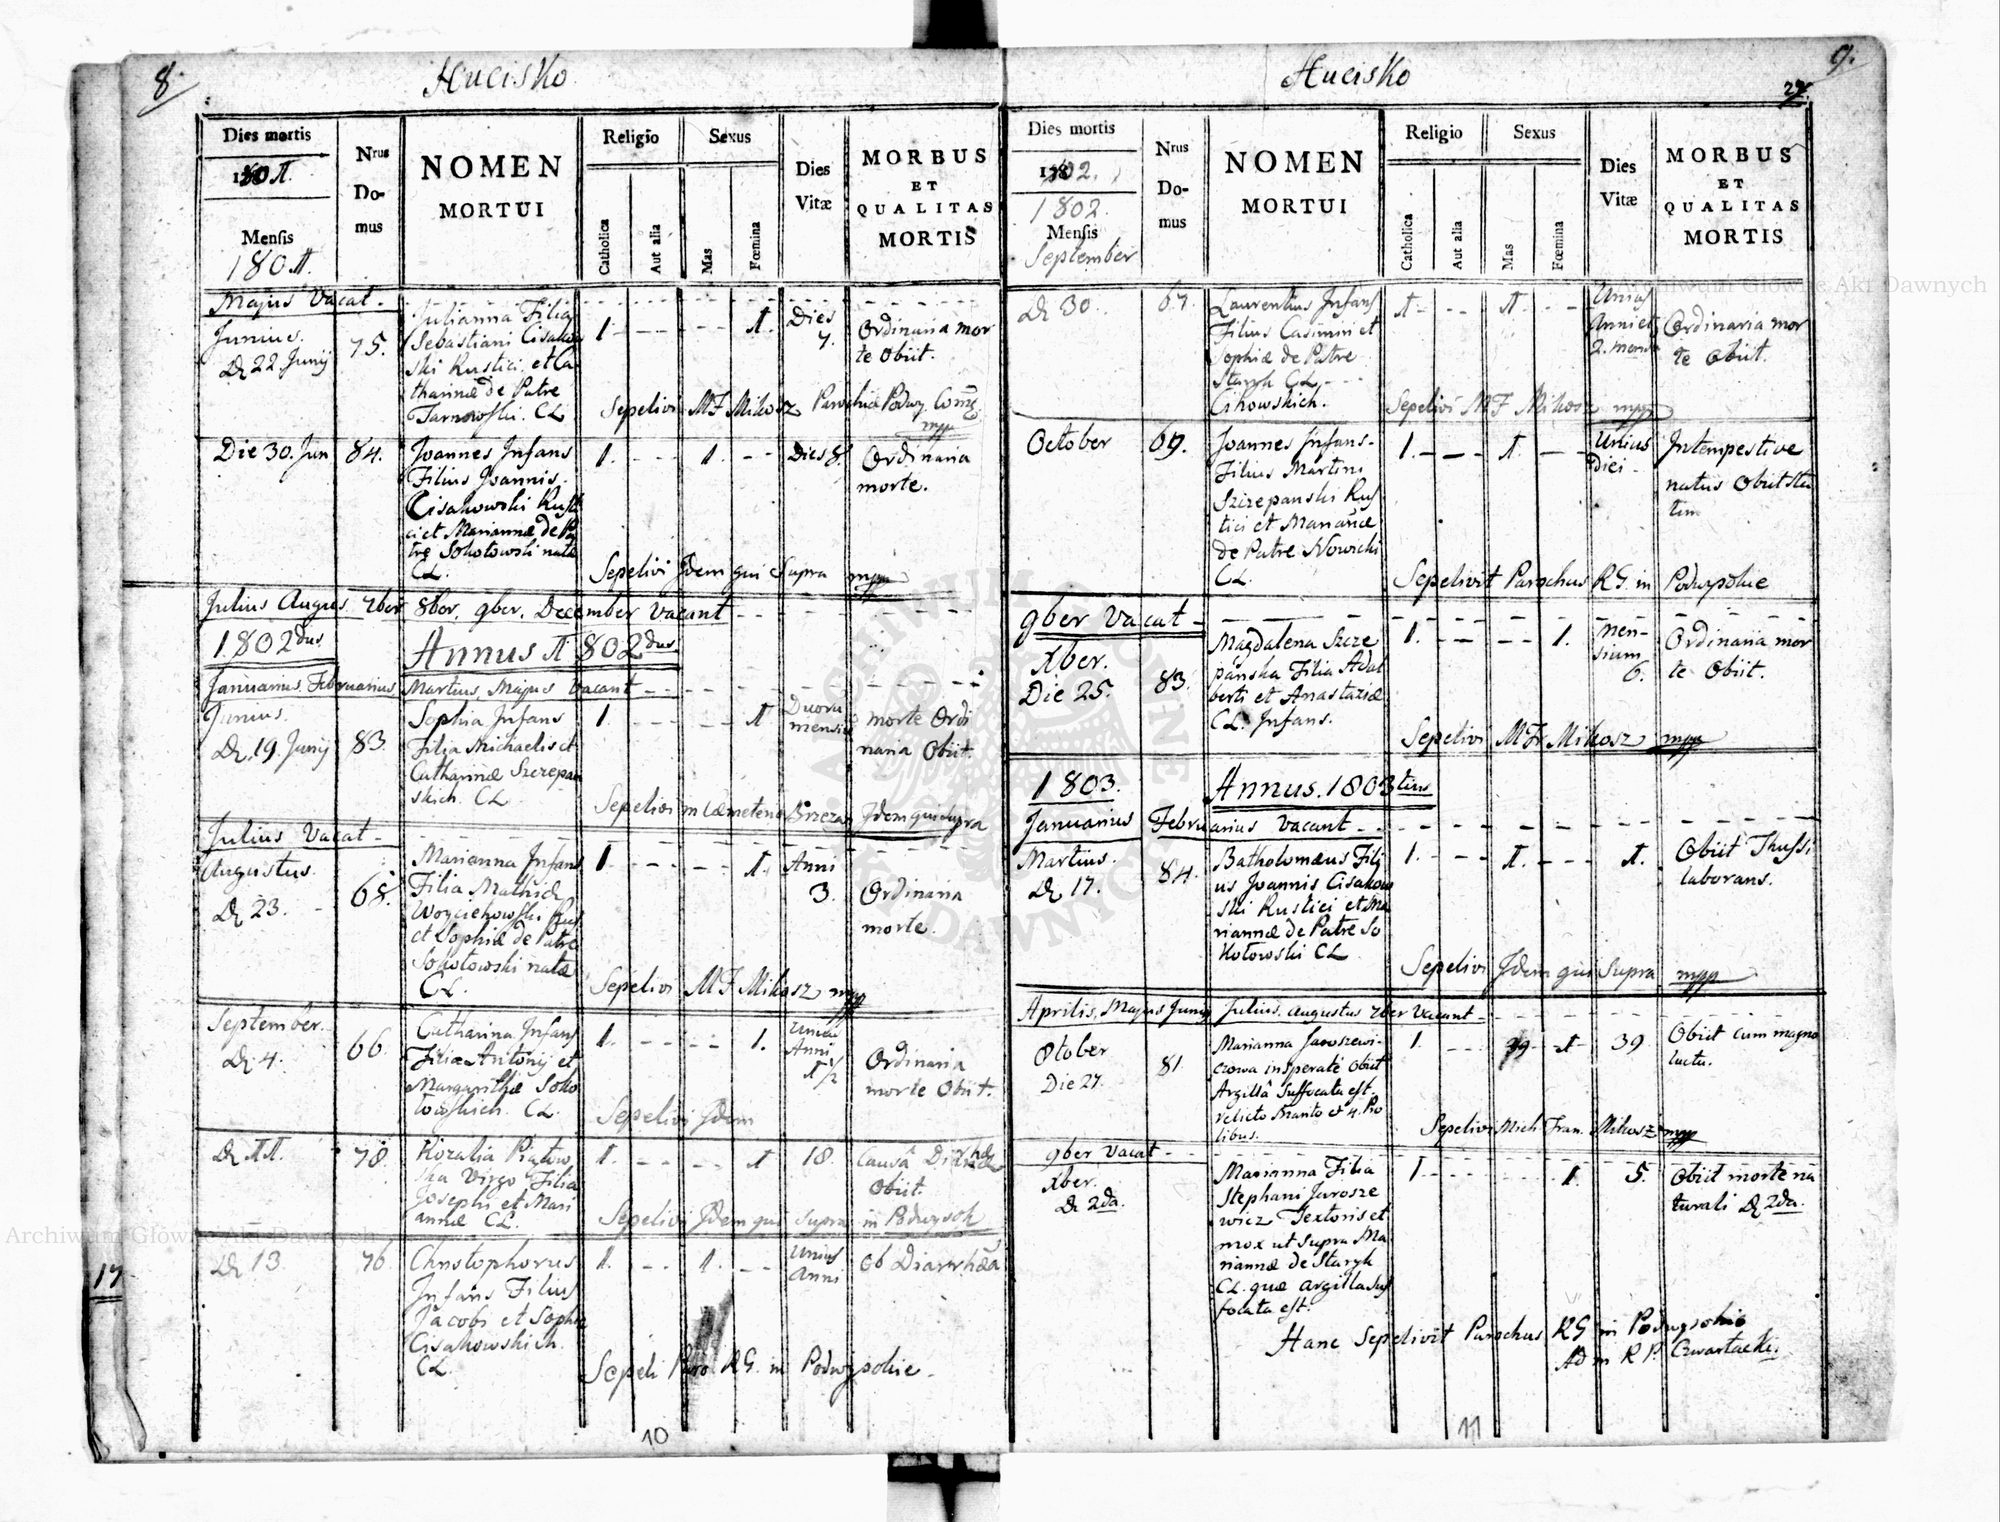 8.
Hucisko
Dies mortis
1801.
Mensis
1801.
Nrus
Do-
mus
NOMEN
MORTUI
Religio
Catholica
Aut alia
Sexus
Mas
Fœmina
Dies
Vitæ
MORBUS
ET
QUALITAS
MORTIS
Majus Vacat -
Junius.
D 22 Junij
75.
Julianna Filia
Sebastiani Cisakow
ski Rustici et Ca
tharinæ de Patre
Tarnowski. CL
1. - - - - - 1.
Dies
7.
Ordinaria mor
te Obiit.
Sepelivi MF Mikosz Parochiæ Podwy. Comp.
mpp
Die 30. Jun
84.
Joannes Infans
Filius Joannis
Cisakowski Rusti
ci et Mariannæ de Pa
tre Sokołowski natæ
CL.
1. - - 1. - -
Dies 8.
Ordinaria
morte.
Sepelivi Idem qui Supra mpp
Julius Augus. 7ber 8ber. 9ber. December Vacant - -
1802dus
Annus 1802dus
Januarius Februarius Martius, Majus Vacant - - -
Junius.
D. 19 Junij
83.
Sophia Infans
Filia Michaelis et
Catharinæ Szczepan
skich. CL
1. - - - - 1
Duoru
mensiu
morte Ordi
naria Obiit.
Sepelivi in Cæmeterio Brzezan Idem qui supra
Julius Vacat -
Augustus.
D 23. -
68.
Marianna Infans
Filia Mathiæ
Woyciehowski Rus
et Sophiæ de Patre
Sokołowski natæ
CL.
1. - - - - 1.
Anni
3.
Ordinaria
morte.
Sepelivi MF Mikosz mpp
September.
D 4.
66
Catharina Infans
Filiæ Antonij et
Margarithæ Soko
łowskich. CL
1. - - - - 1.
Unius
Anni
1/2
Ordinaria
morte Obiit.
Sepelivi Idem
D 11.
78.
Rozalia Piątow
ska Virgo Filia
Josephi et Mari
annæ CL.
1. - - - - 1
18.
Causâ Diarhæ
Obiit.
Sepelivi Idem qui supra in Podwysok
D 13
76.
Christophorus
Infans Filius
Jacobi et Sophiæ
Cisakowskich
CL.
1. - - 1. - -
Unius
Anni
Ob Diarrhæa
Sepeli Paro RG. in Podwysokie.
17
10
9.
27.
Hucisko
Dies mortis
1802.
1802.
Mensis
September
Nrus
Do-
mus
NOMEN
MORTUI
Religio
Catholica
Aut alia
Sexus
Mas
Fœmina
Dies
Vitæ
MORBUS
ET
QUALITAS
MORTIS
D 30.
67.
Laurentius Infans
Filius Casimiri et
Sophiæ de Patre
Staryk CL - - -
Cihowskich.
1 - - - 1 - - -
Unius
Anni et
2. mensiu
Ordinaria mor
te Obiit.
Sepelivi MF Mikosz mpp
October
69.
Joannes Infans -
Filius Martini
Szczepanski Rus
tici et Mariannæ
de Patre Nowicki
CL
1. - - - 1. - -
Unius
Diei -
Intempestive
natus Obiit sta
tim
Sepelivit Parochus RG. in Podwysokie
9ber Vacat -
Xber.
Die 25.
83.
Magdalena Szcze
pańska Filia Adal
berti et Anastaziæ
CL. Infans.
1. - - - - 1.
Men-
sium
6.
Ordinaria mor
te Obiit.
Sepelivi MFr Mikosz mpp
1803.
Annus. 1803tius
Januarius Februarius Vacant - - -
Martius.
D 17.
84.
Batholomæus Fili
us Joannis Cisakow
ski Rustici et Ma
riannæ de Patre So
kołowski CL
1. - - - 1. - - -
1.
Obiit Thussi
laborans.
Sepelivi Idem qui Supra mpp
Aprilis, Majus Junij Julius, Augustus 7ber Vacant -
8tober
Die 27.
81
Marianna Jaroszewi-
czowa insperate Obiit
Argillâ Suffocata est,
relicto Marito et 4. Pro
libus.
1. - - - 1
39
Obiit cum magno
luctu.
Sepelivi Mich Fran. Mikosz mpp
9ber vacat - -
Xber.
D 2da.
Marianna Filia
Stephani Jarosze
wicz Textoris et
mox ut supra Ma
riannæ de Staryk
CL. quæ argilla suf
focata est.
1 - - - - - 1.
5.
Obiit morte na
turali D 2da.
Hanc Sepelivit Parochus RG in Podwysokie
Adm RP. Czwartacki.
11
Archiwum Główne Akt Dawnych
Archiwum Główne Akt Dawnych
ARCHIWUM GŁÓWNE AKT DAWNYCH